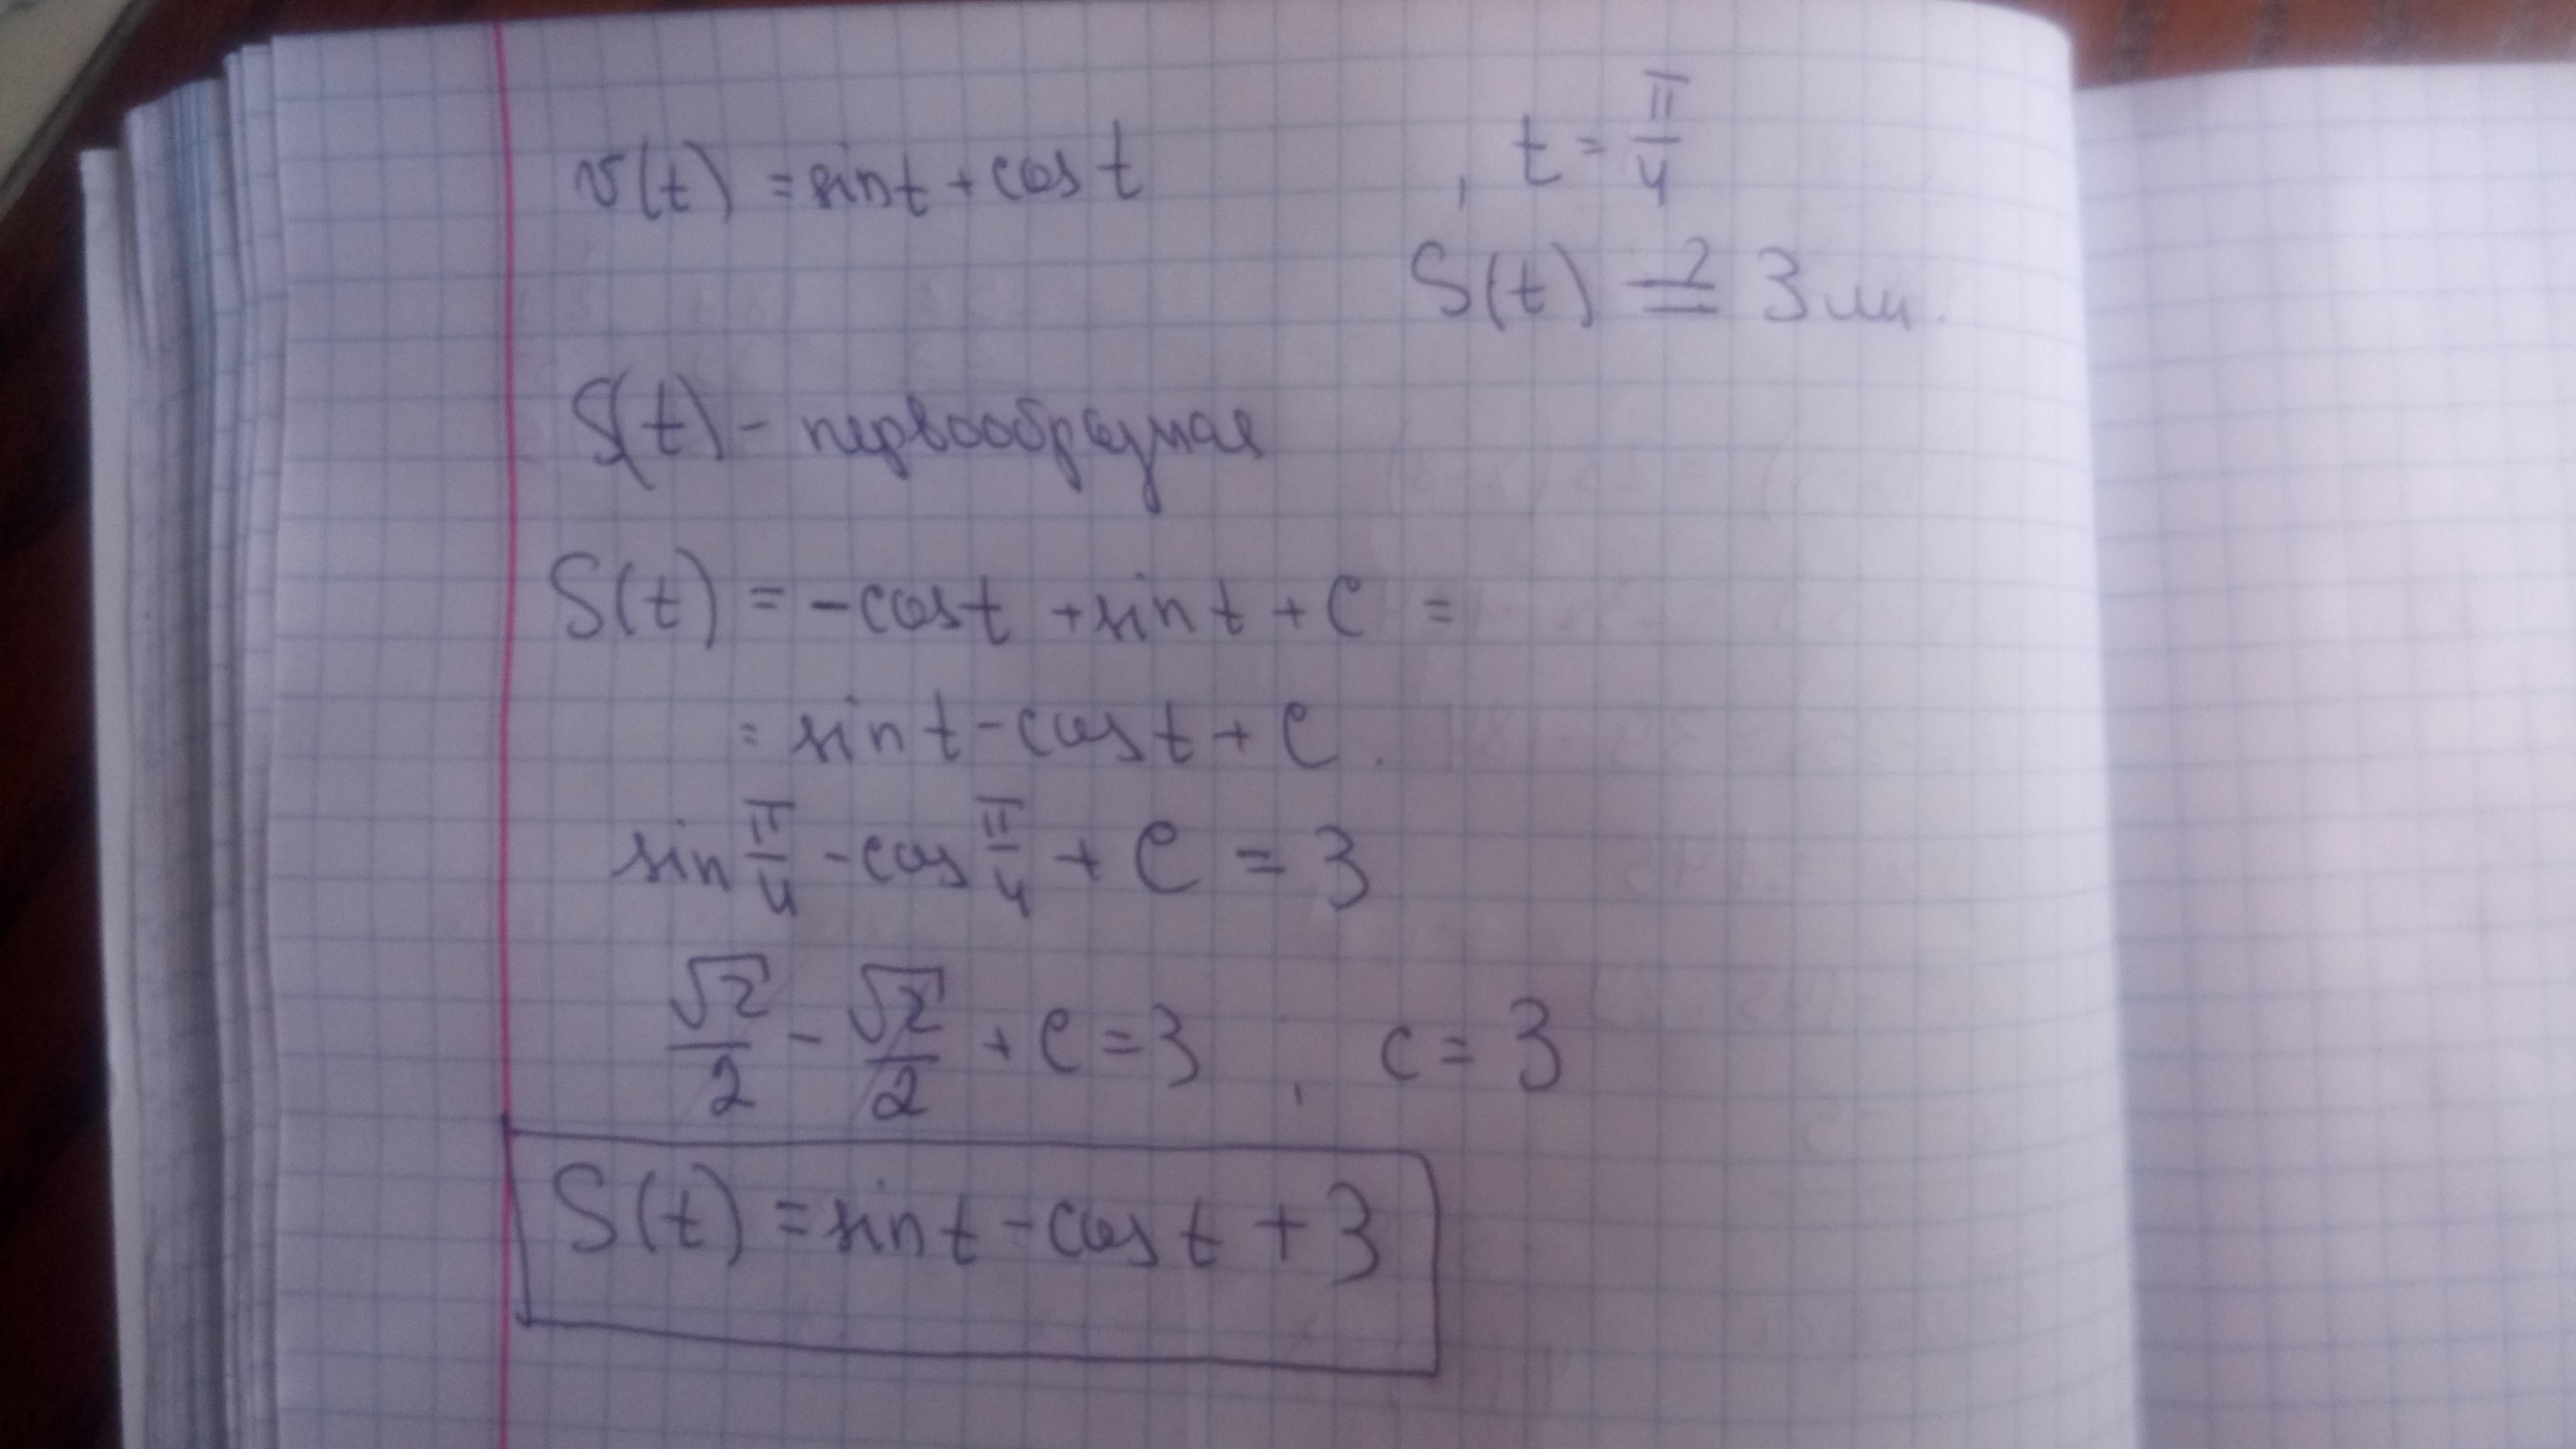 v(t) = sin t + cos t , t = π/4
S(t) = 3 м.
S(t) - первообразная
S(t) = -cos t + sin t + C =
= sin t - cos t + C.
sin π/4 - cos π/4 + C = 3
√2/2 - √2/2 + C = 3 , C = 3
S(t) = sin t - cos t + 3